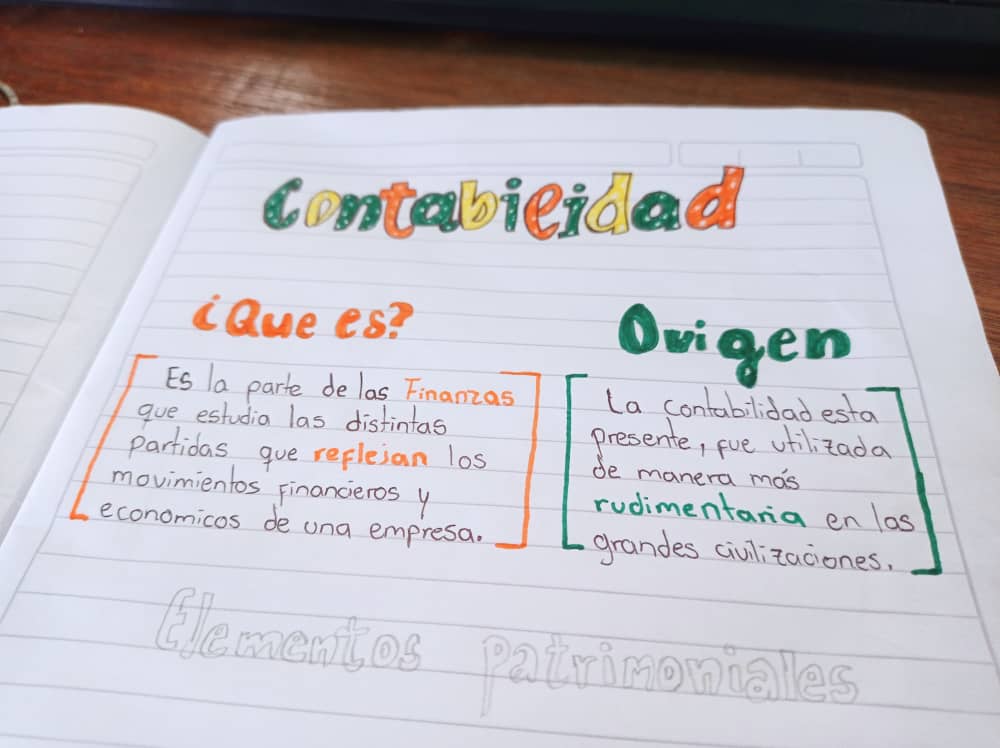 Contabilidad
¿Que es?
Es la parte de las Finanzas
que estudia las distintas
partidas que reflejan los
movimientos Financieros y
economicos de una empresa.
Origen
La contabilidad esta
presente, fue utilizada
de manera más
rudimentaria en las
grandes civilizaciones.
Elementos Patrimoniales